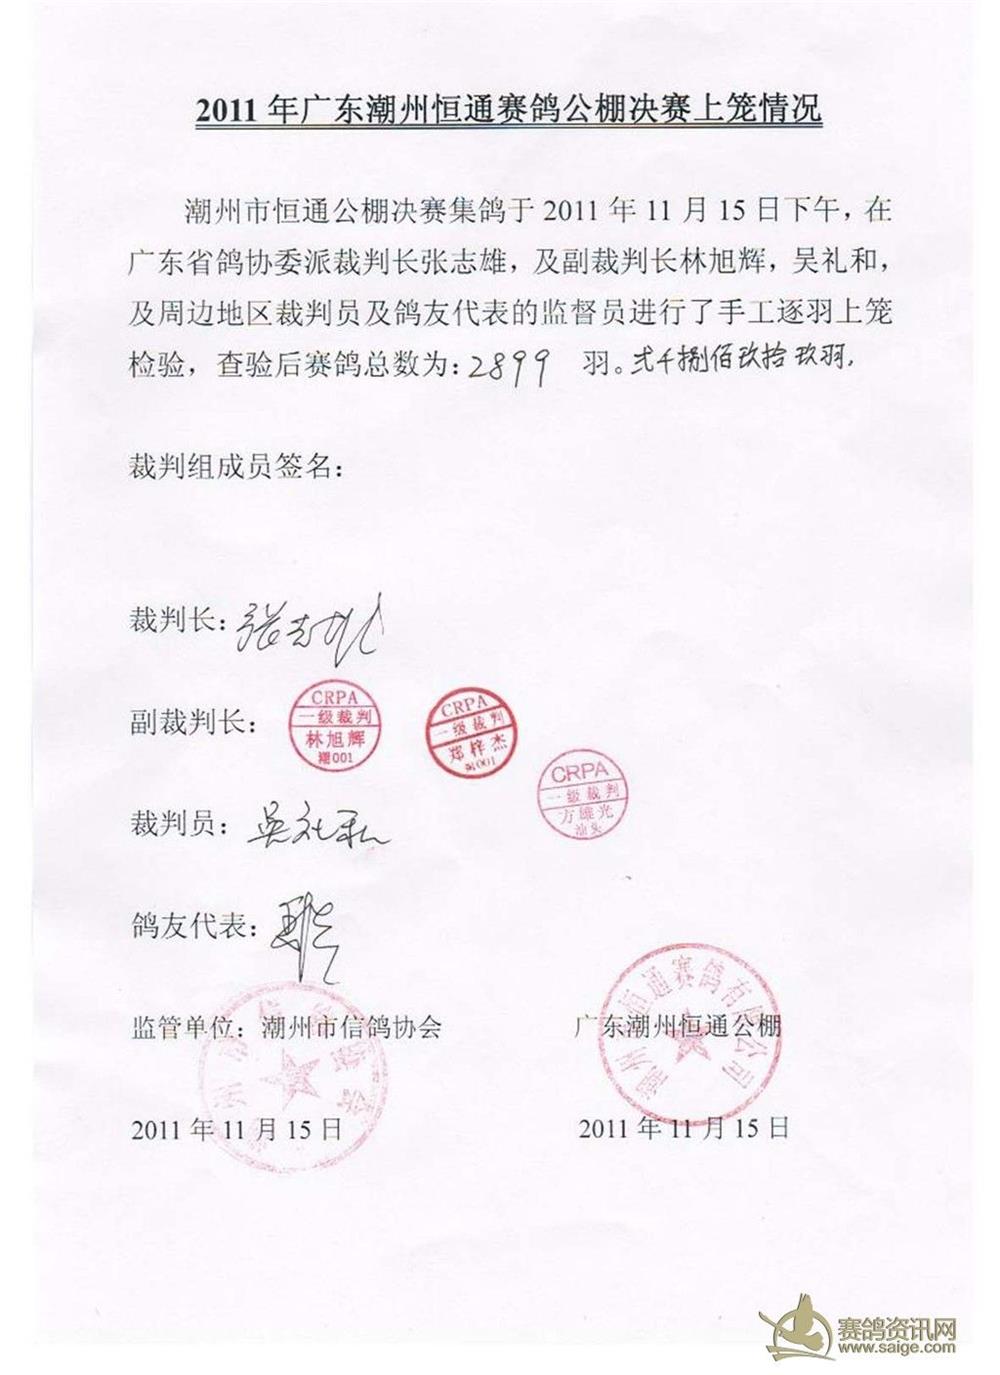 2011年广东潮州恒通赛鸽公棚决赛上笼情况
潮州市恒通公棚决赛集鸽于2011年11月15日下午，在
广东省鸽协委派裁判长张志雄，及副裁判长林旭辉，吴礼和，
及周边地区裁判员及鸽友代表的监督员进行了手工逐羽上笼
检验，查验后赛鸽总数为：2899 羽。弍千捌佰玖拾玖羽.
裁判组成员签名：
裁判长：张志雄
副裁判长：
CRPA
一级裁判
林旭辉
CRPA
一级裁判
郑梓杰
CRPA
一级裁判
方雄光
汕头
裁判员：吴礼和
鸽友代表：
监管单位：潮州市信鸽协会
广东潮州恒通公棚
恒通赛鸽有限公司
2011年11月15日
2011年11月15日
赛鸽资讯网
www.saige.com